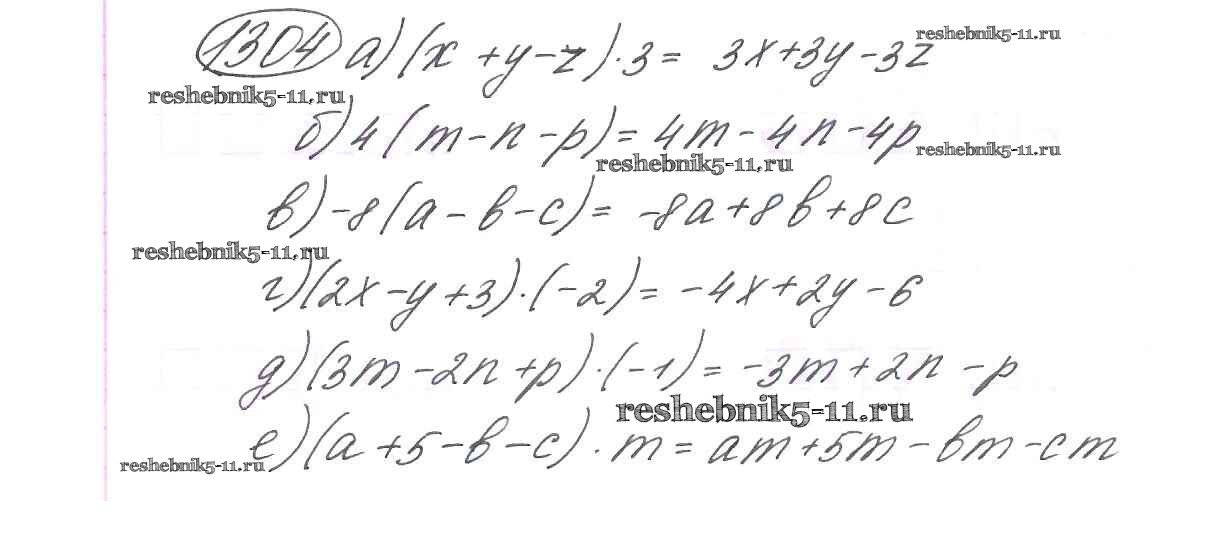 1304 а) (x + y - z) · 3 = 3x + 3y - 3z
reshebnik5-11.ru
reshebnik5-11.ru
б) 4 (m - n - p) = 4m - 4n - 4p
reshebnik5-11.ru
reshebnik5-11.ru
в) -8 (a - b - c) = -8a + 8b + 8c
reshebnik5-11.ru
г) (2x - y + 3) · (-2) = -4x + 2y - 6
д) (3m - 2n + p) · (-1) = -3m + 2n - p
reshebnik5-11.ru
е) (a + 5 - b - c) · m = am + 5m - bm - cm
reshebnik5-11.ru